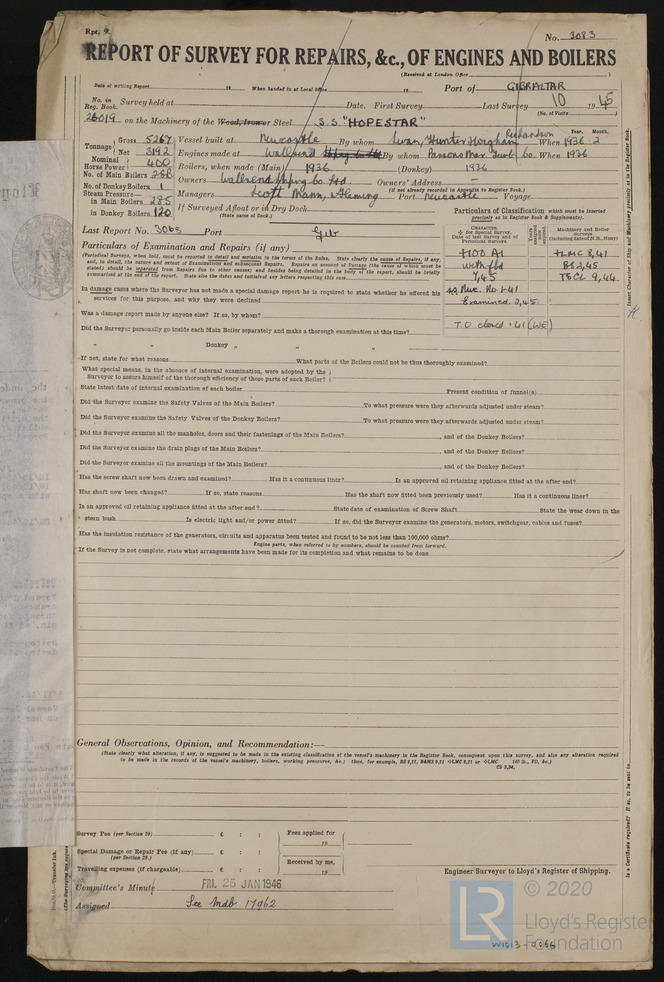 Rpt. 9.
No. 3083
REPORT OF SURVEY FOR REPAIRS, &c., OF ENGINES AND BOILERS
(Received at London Office
Date of writing Report 19 When handed in at Local Office 19 Port of GIBRALTAR
No. in Reg. Book. Survey held at Date. First Survey Last Survey 10 1945
(No. of Visits
26019 on the Machinery of the Wood, Iron or Steel S.S. "HOPESTAR"
Tonnage Gross 5267 Vessel built at Newcastle By whom Swan, Hunter & Wigham Richardson When 1936 . 2
Year. Month.
Net 3192 Engines made at Wallsend By whom Parsons Mar. Turb. Co. When 1936
Nominal Horse Power 400 Boilers, when made (Main) 1936 (Donkey) 1936
No. of Main Boilers 2SB Owners Wallsend Shipping Co. Ltd. Owners' Address
(if not already recorded in Appendix to Register Book.)
No. of Donkey Boilers 1 Managers Scott Mann, & Fleming Port Newcastle Voyage
Steam Pressure in Main Boilers 285 If Surveyed Afloat or in Dry Dock
(State name of Dock.)
in Donkey Boilers 120
Particulars of Classification which must be inserted precisely as in Register Book & Supplements).
Last Report No. 3065 Port Gib
CHARACTER. ✠ for Special Survey. Date of last Survey and of Periodical Surveys.
Machinery and Boiler Surveys (including dates of N.B., Many)
Particulars of Examination and Repairs (if any)
(Periodical Surveys, when held, must be reported in detail and seriatim in the terms of the Rules. State clearly the cause of Repairs, if any, and, in detail, the nature and extent of Examinations and subsequent Repairs. Repairs on account of Damage (the cause of which must be stated) should be separated from Repairs due to other causes; and besides being detailed in the body of the report, should be briefly summarized at the end of the report. State also the dates and initials of any letters respecting this case.
+100 A1
with fbd
7,45
ss Nwc. No.1-41
Examined 2,45
T.O. closed . 41 (WE)
+LMC 8,41
BS 2,45
TSCL 9,44
In damage cases where the Surveyor has not made a special damage report he is required to state whether he offered his services for this purpose, and why they were declined
Was a damage report made by anyone else? If so, by whom?
Did the Surveyor personally go inside each Main Boiler separately and make a thorough examination at this time?
„ „ Donkey „ „ „
If not, state for what reasons What parts of the Boilers could not be thus thoroughly examined?
What special means, in the absence of internal examination, were adopted by the Surveyor to assure himself of the thorough efficiency of those parts of each Boiler?
State latest date of internal examination of each boiler Present condition of funnel(s)
Did the Surveyor examine the Safety Valves of the Main Boilers? To what pressure were they afterwards adjusted under steam?
Did the Surveyor examine the Safety Valves of the Donkey Boilers? To what pressure were they afterwards adjusted under steam?
Did the Surveyor examine all the manholes, doors and their fastenings of the Main Boilers? , and of the Donkey Boilers?
Did the Surveyor examine the drain plugs of the Main Boilers? , and of the Donkey Boilers?
Did the Surveyor examine all the mountings of the Main Boilers? , and of the Donkey Boilers?
Has the screw shaft now been drawn and examined? Has it a continuous liner? Is an approved oil retaining appliance fitted at the after end?
Has shaft now been changed? If so, state reasons Has the shaft now fitted been previously used? Has it a continuous liner?
Is an approved oil retaining appliance fitted at the after end? State date of examination of Screw Shaft State the wear down in the stern bush Is electric light and/or power fitted? If so, did the Surveyor examine the generators, motors, switchgear, cables and fuses?
Has the insulation resistance of the generators, circuits and apparatus been tested and found to be not less than 100,000 ohms?
Engine parts, when referred to by numbers, should be counted from forward.
If the Survey is not complete, state what arrangements have been made for its completion and what remains to be done
General Observations, Opinion, and Recommendation:—
(State clearly what alteration, if any, is suggested to be made in the existing classification of the vessel's machinery in the Register Book, consequent upon this survey, and also any alteration required to be made in the records of the vessel's machinery, boilers, working pressures, &c.;
Survey Fee (per Section 29) £ : : Fees applied for
19
Special Damage or Repair Fee (if any) (per Section 29.) £ : :
Received by me,
Travelling expenses (if chargeable) £ : : 19
Engineer Surveyor to Lloyd's Register of Shipping.
Committee's Minute FRI. 25 JAN 1946
Assigned See Mdb 17962
© 2020
LR
Lloyd's Register Foundation
W1013-0066